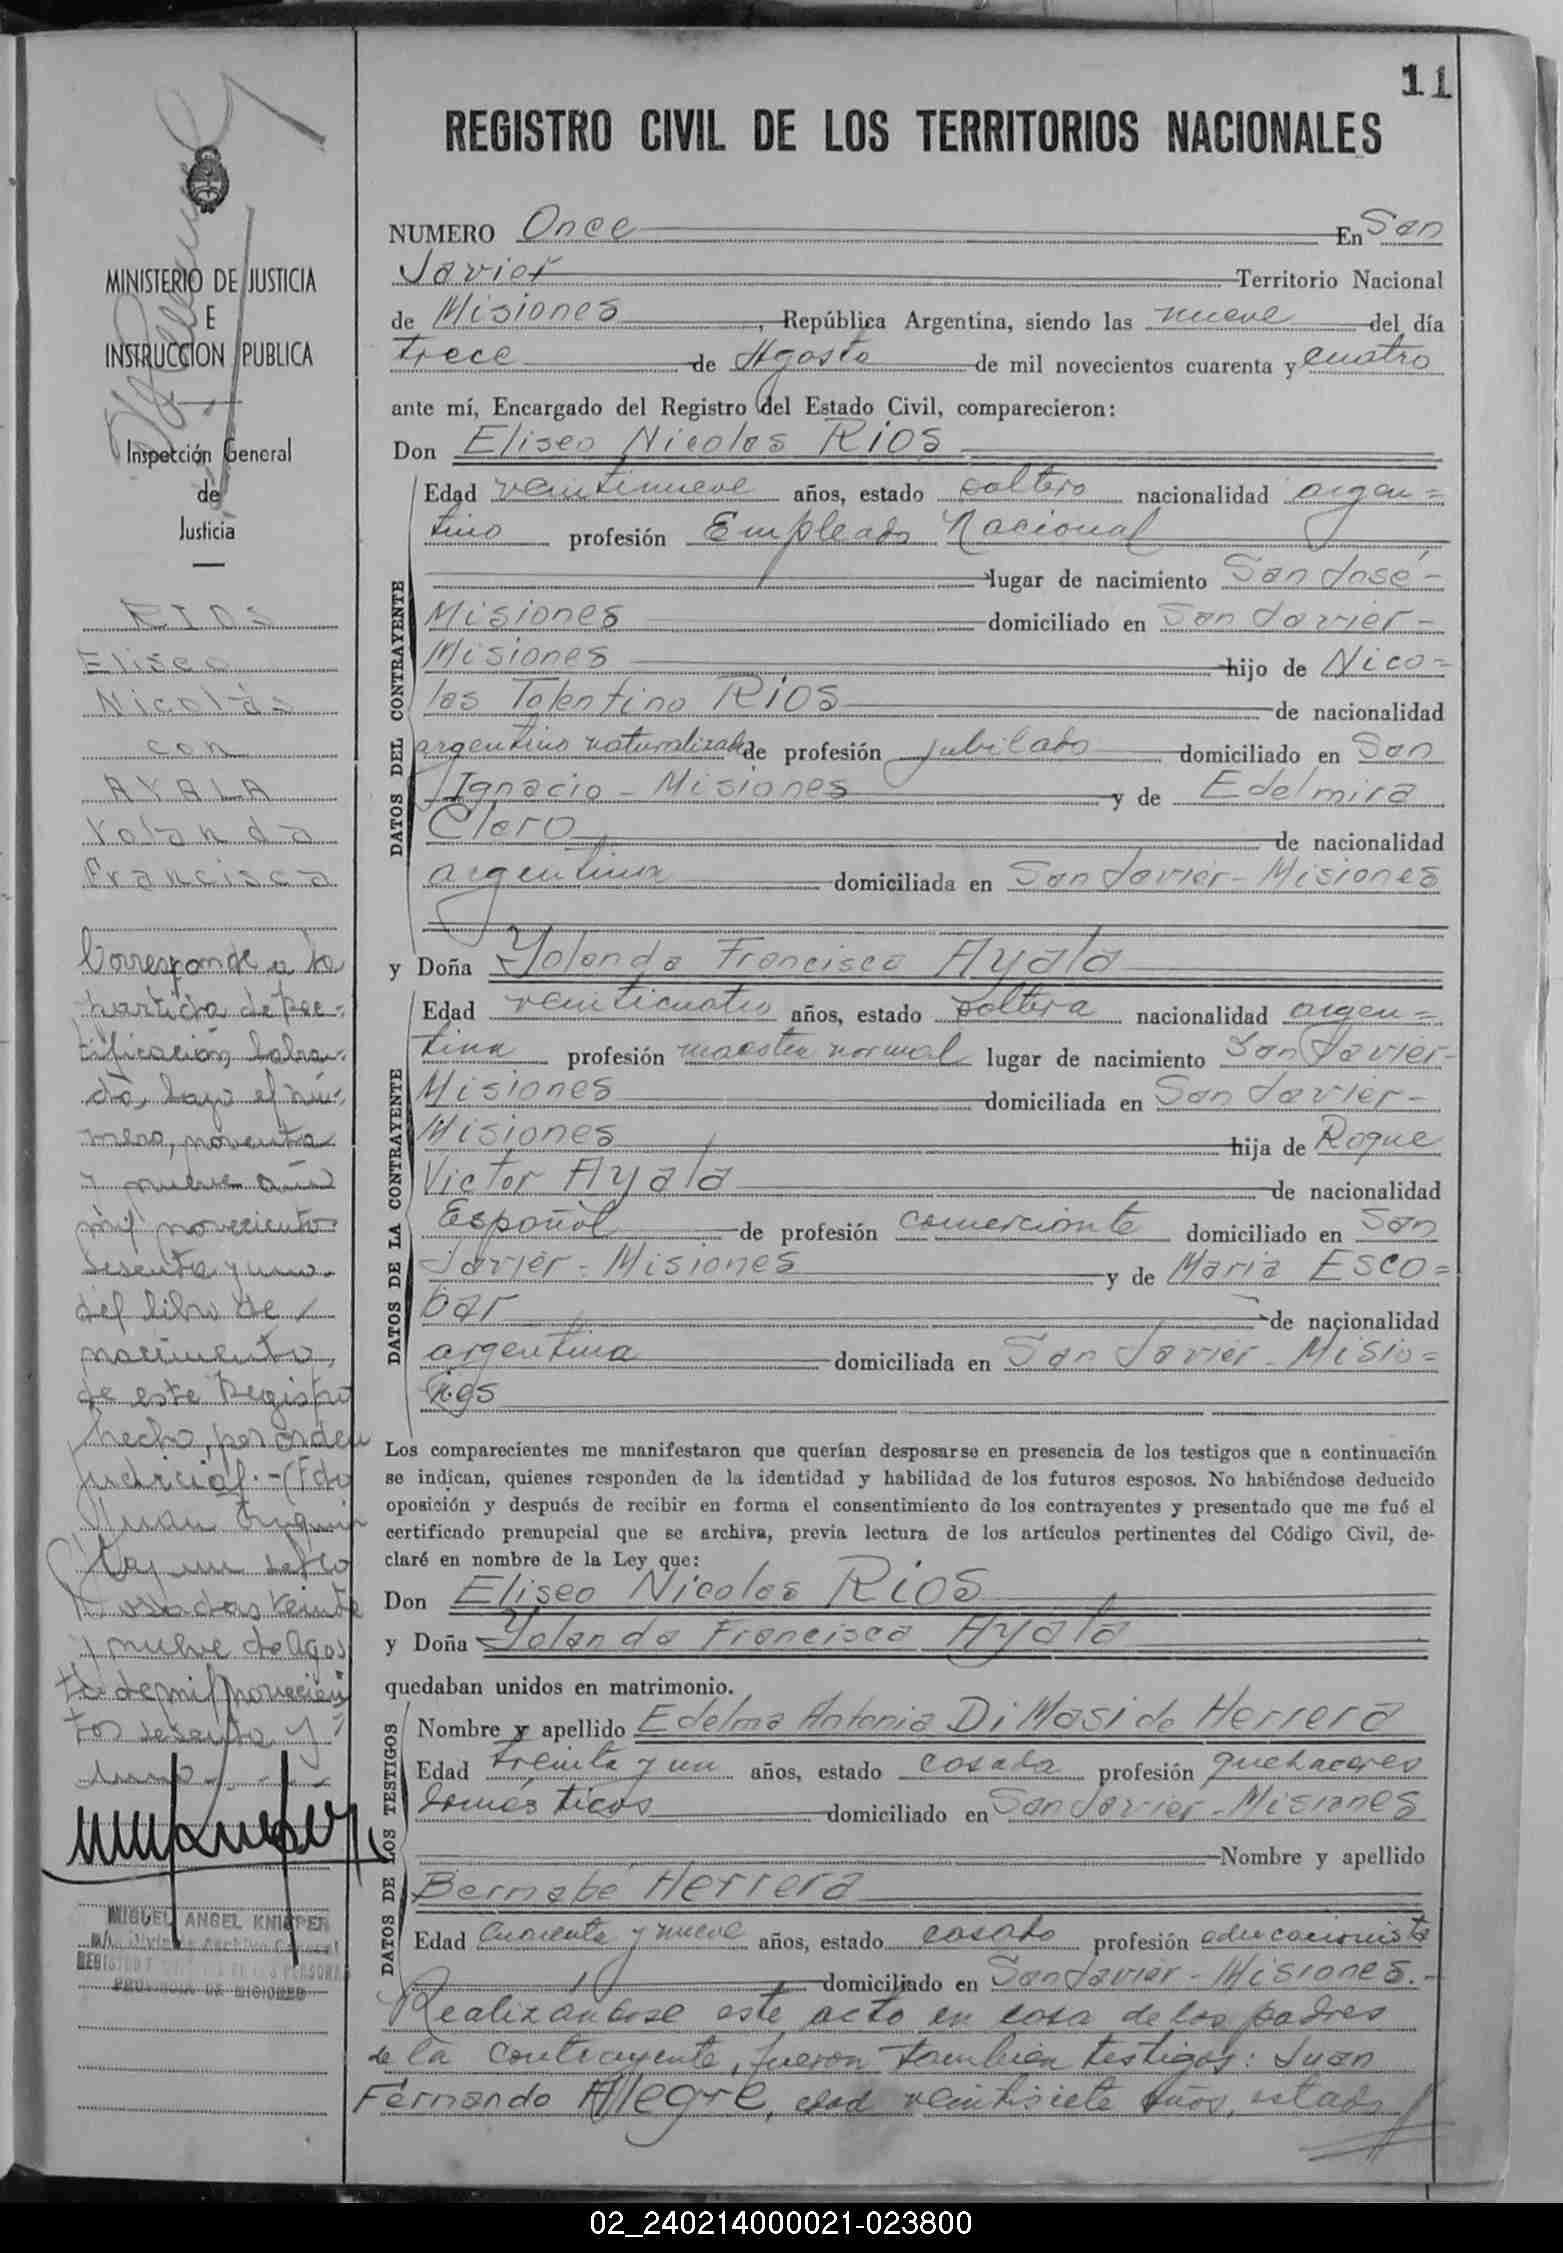 11
REGISTRO CIVIL DE LOS TERRITORIOS NACIONALES
MINISTERIO DE JUSTICIA
E
INSTRUCCION PUBLICA
Inspección General
de
Justicia
RIOS
Eliseo
Nicolás
con
AYALA
Yolanda
Francisca
Corresponde a la
partida de rec-
tificación, labra-
da, bajo el nú-
mero, noventa
y nueve año
mil novecientos
sesenta y uno
del libro de
nacimiento,
de este Registro
hecho, por orden
judicial.-(Fdo
Juan
Hay un sello
Posadas veinte
y nueve de agos
to de mil novecien
tos sesenta y
uno
MIGUEL ANGEL KNIPPER
PROVINCIA DE MISIONES
NUMERO Once En San
Javier Territorio Nacional
de Misiones, República Argentina, siendo las nueve del día
trece de Agosto de mil novecientos cuarenta y cuatro
ante mí, Encargado del Registro del Estado Civil, comparecieron:
Don Eliseo Nicolas RIOS
DATOS DEL CONTRAYENTE
Edad veintinueve años, estado soltero nacionalidad argen=
tino profesión Empleado Nacional
lugar de nacimiento San José-
Misiones domiciliado en San Javier-
Misiones hijo de Nico=
las Tolentino RIOS de nacionalidad
argentino naturalizado de profesión jubilado domiciliado en San
Ignacio - Misiones y de Edelmira
Claro de nacionalidad
argentina domiciliada en San Javier - Misiones
y Doña Yolanda Francisca AYala
DATOS DE LA CONTRAYENTE
Edad veinticuatro años, estado soltera nacionalidad argen=
tina profesión maestra normal lugar de nacimiento San Javier-
Misiones domiciliada en San Javier-
Misiones hija de Roque
Victor AYala de nacionalidad
Español de profesión comerciante domiciliado en San
Javier - Misiones y de Maria ESCO=
bar de nacionalidad
argentina domiciliada en San Javier - Misio=
nes
Los comparecientes me manifestaron que querían desposarse en presencia de los testigos que a continuación
se indican, quienes responden de la identidad y habilidad de los futuros esposos. No habiéndose deducido
oposición y después de recibir en forma el consentimiento de los contrayentes y presentado que me fué el
certificado prenupcial que se archiva, previa lectura de los artículos pertinentes del Código Civil, de-
claré en nombre de la Ley que:
Don Eliseo Nicolas RIOS
y Doña Yolanda Francisca AYala
quedaban unidos en matrimonio.
DATOS DE LOS TESTIGOS
Nombre y apellido Edelma Antonia Di Masi de Herrera
Edad treinta y un años, estado casada profesión quehaceres
domésticos domiciliado en San Javier - Misiones
Nombre y apellido
Bernabé Herrera
Edad Cuarenta y nueve años, estado casado profesión educacionista
domiciliado en San Javier - Misiones.-
Realizándose este acto en casa de los padres
de la contrayente, fueron también testigos: Juan
Fernando Alegre, edad veintisiete años, estado
02_240214000021-023800